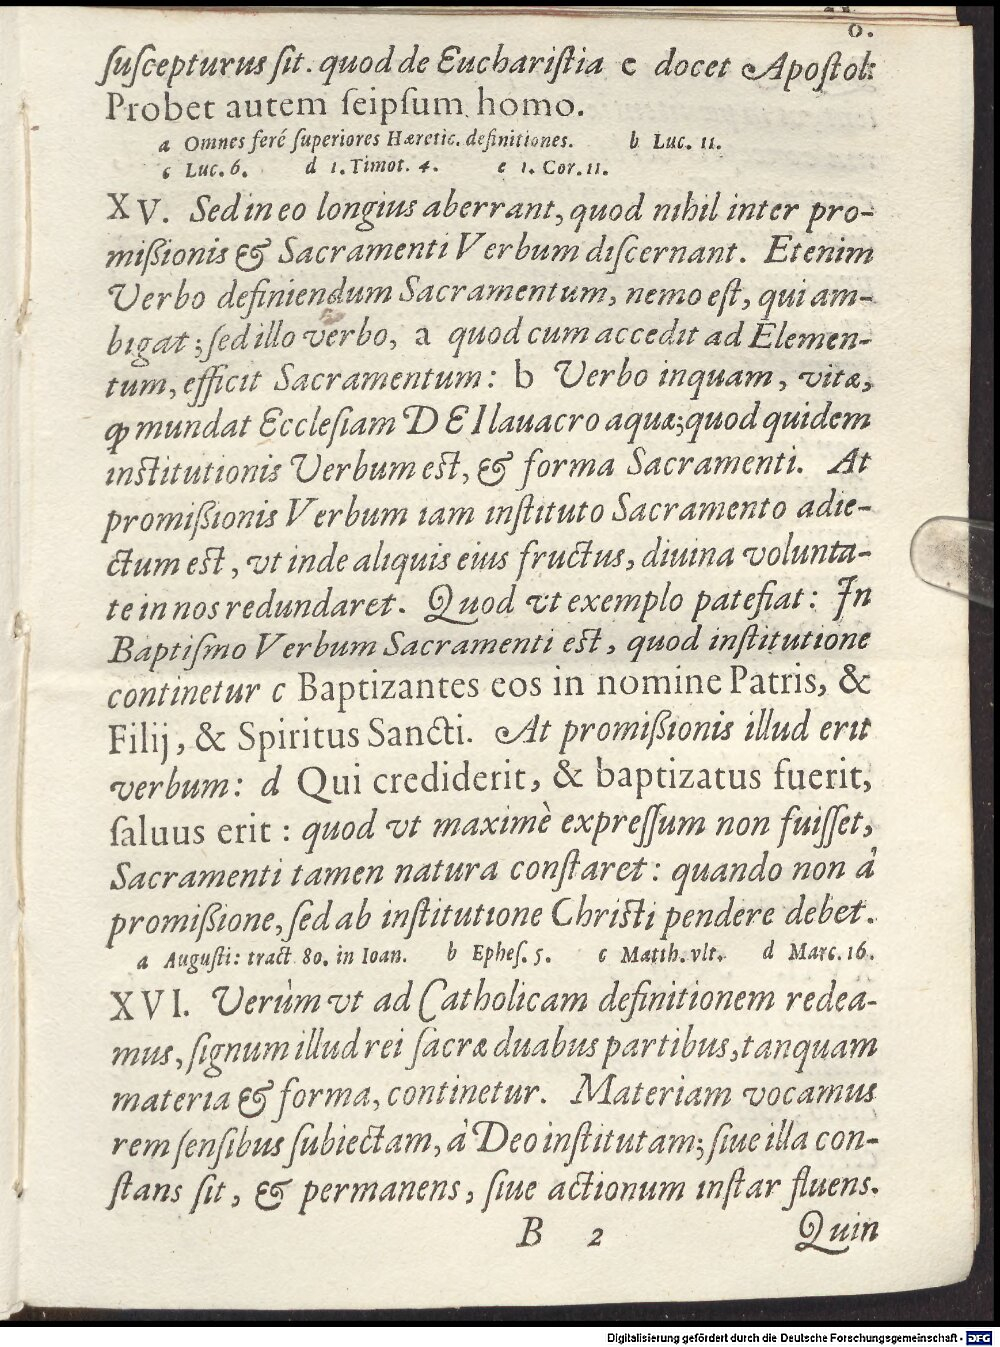 o.
ſuſcepturus ſit. quod de Euchariſtia e docet Apoſtol:
Probet autem ſeipſum homo.
a Omnes feré ſuperiores Hæretic. definitiones. b Luc. 11.
c Luc. 6. d 1. Timot. 4. e 1. Cor. 11.
XV. Sed in eo longius aberrant, quod nihil inter pro-
mißionis & Sacramenti Verbum diſcernant. Etenim
Verbo definiendum Sacramentum, nemo eſt, qui am-
bigat; ſed illo verbo, a quod cum accedit ad Elemen-
tum, efficit Sacramentum: b Verbo inquam, vitæ,
ꝙ mundat Eccleſiam DEI lauacro aquæ; quod quidem
inſtitutionis Verbum eſt, & forma Sacramenti. At
promißionis Verbum iam inſtituto Sacramento adie-
ctum eſt, vt inde aliquis eius fructus, diuina volunta-
te in nos redundaret. Quod vt exemplo patefiat: In
Baptiſmo Verbum Sacramenti eſt, quod inſtitutione
continetur c Baptizantes eos in nomine Patris, &
Filij, & Spiritus Sancti. At promißionis illud erit
verbum: d Qui crediderit, & baptizatus fuerit,
ſaluus erit: quod vt maximè expreſſum non fuiſſet,
Sacramenti tamen natura conſtaret: quando non à
promißione, ſed ab inſtitutione Chriſti pendere debet.
a Auguſti: tract 80. in Ioan. b Epheſ. 5. c Matth. vlt. d Marc. 16.
XVI. Verùm vt ad Catholicam definitionem redea-
mus, ſignum illud rei ſacræ duabus partibus, tanquam
materia & forma, continetur. Materiam vocamus
rem ſenſibus ſubiectam, à Deo inſtitutam; ſiue illa con-
ſtans ſit, & permanens, ſiue actionum inſtar fluens.
B 2 Quin
Digitalisierung gefördert durch die Deutsche Forschungsgemeinschaft - DFG